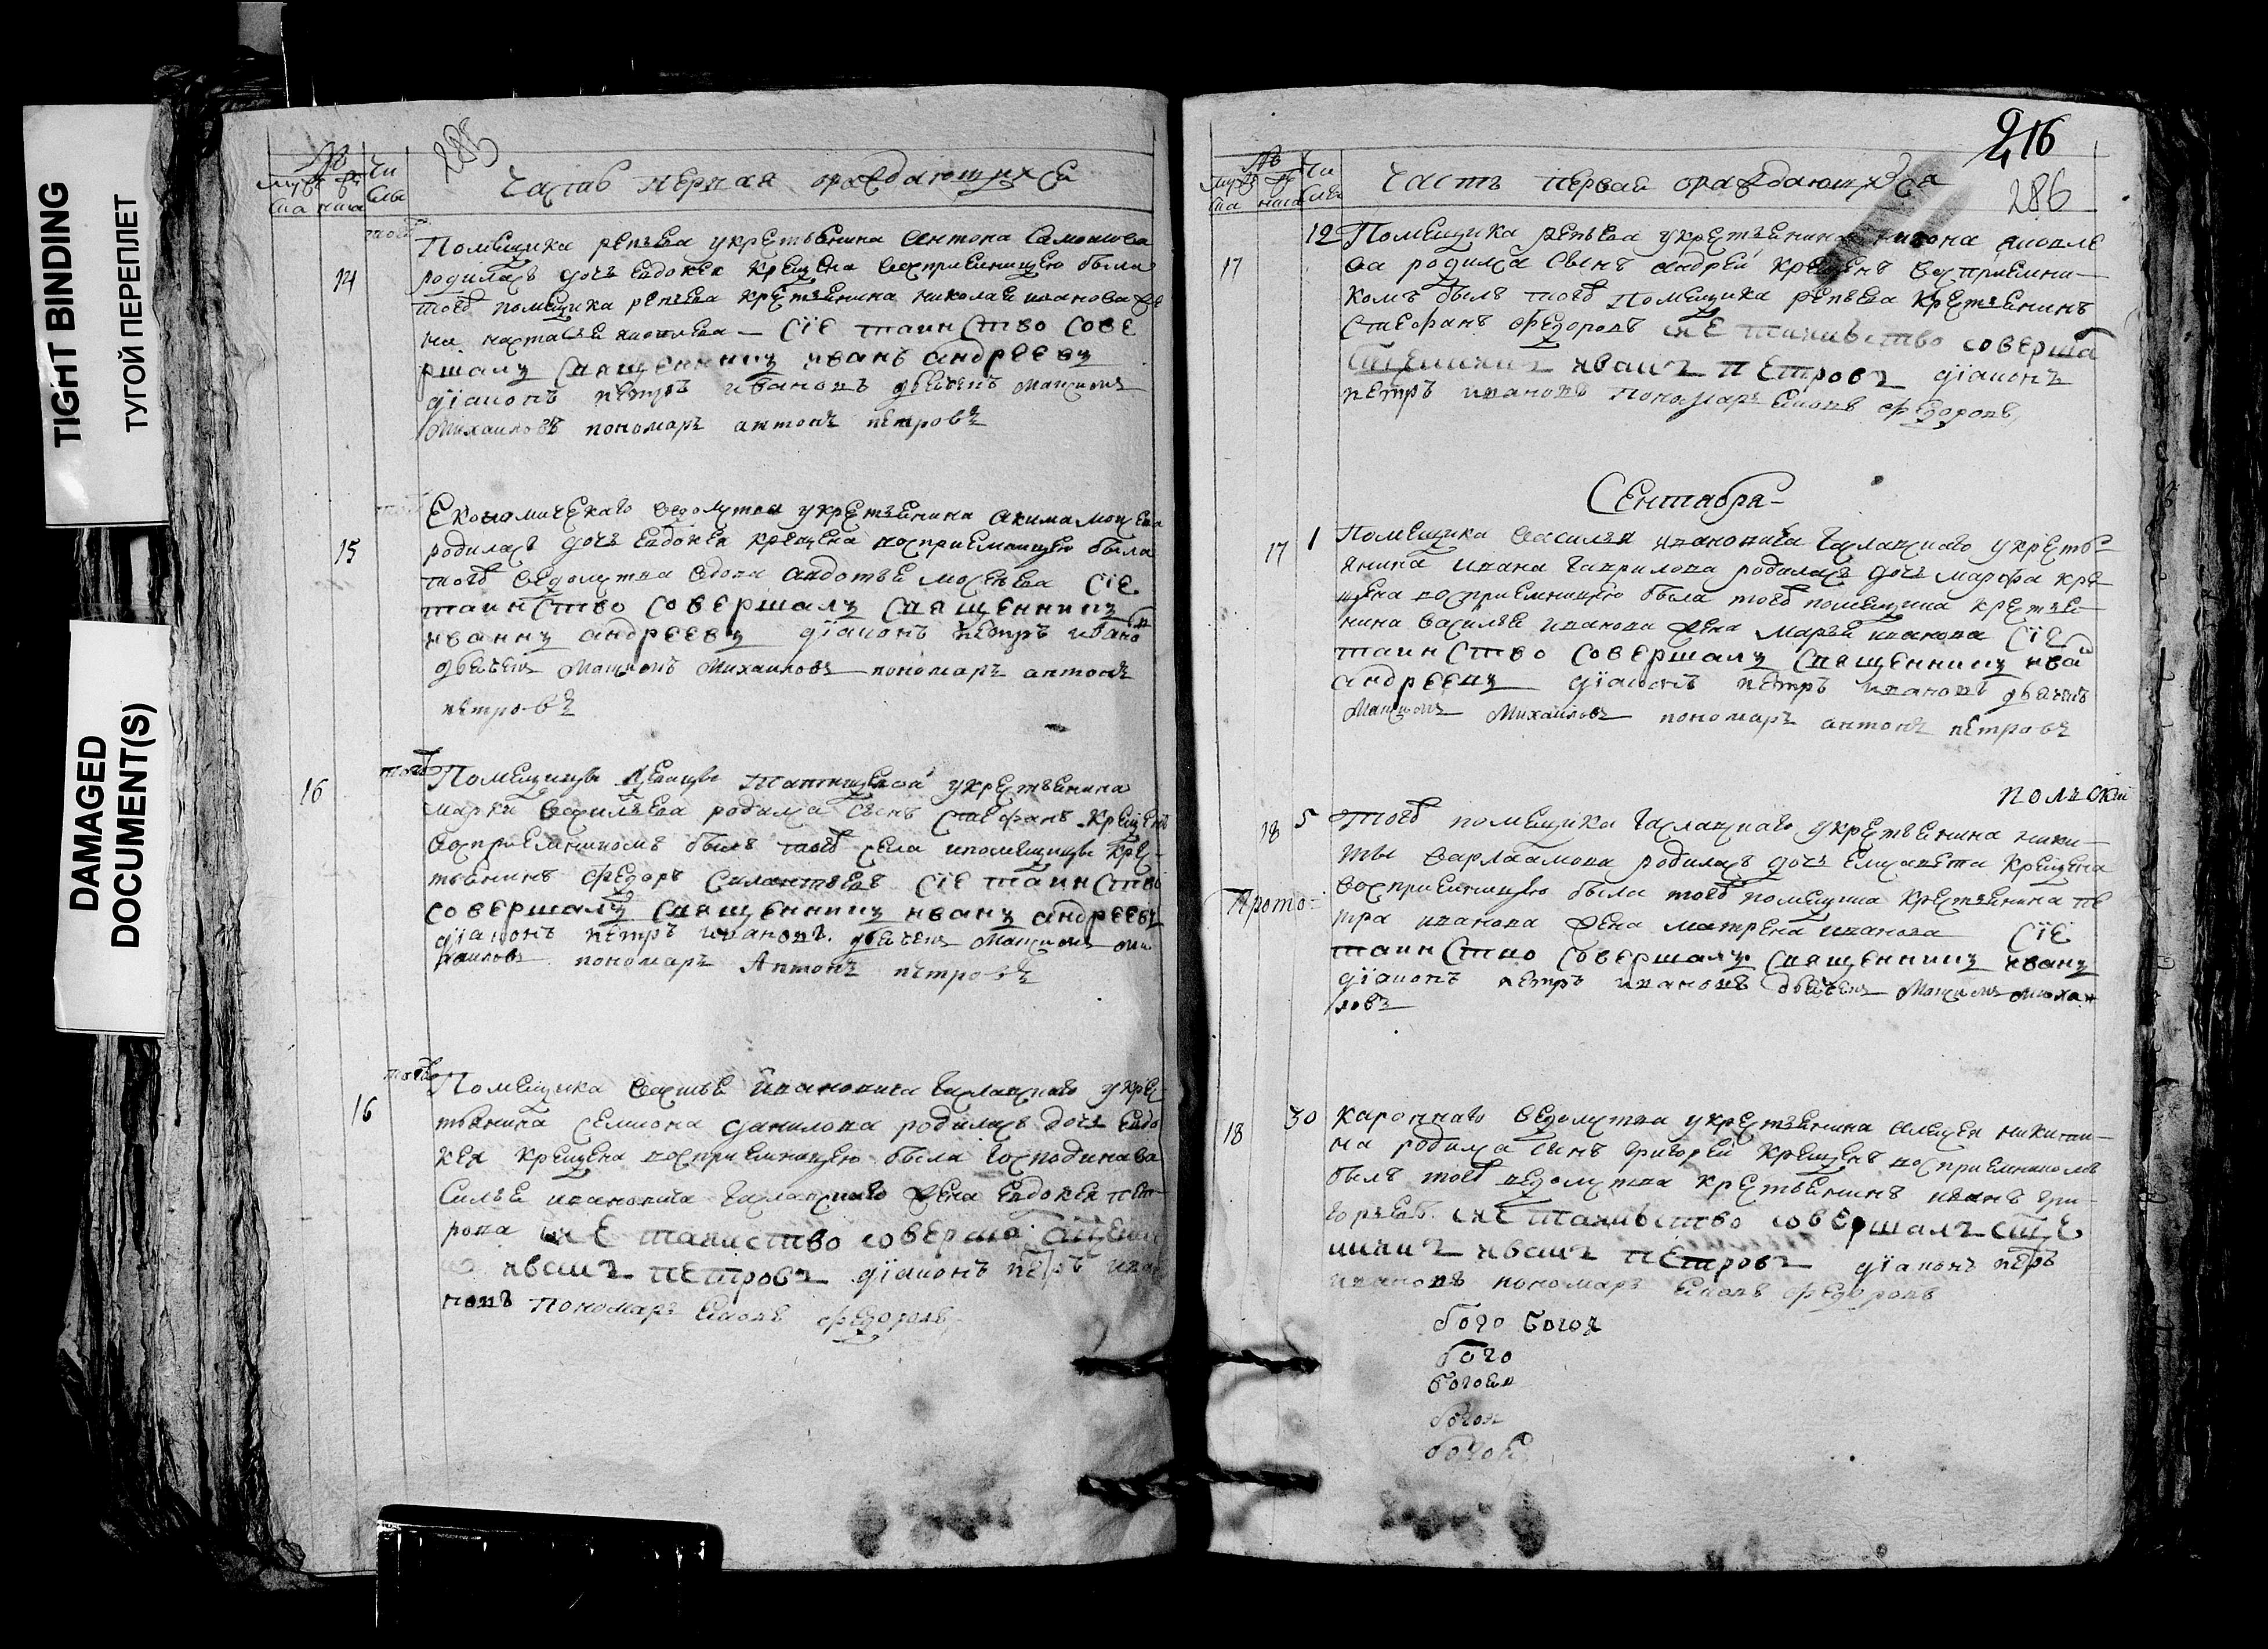 TIGHT BINDING
ТУГОЙ ПЕРЕПЛЕТ
DAMAGED
DOCUMENT(S)
№
Чи
сла
Часть первая ораждающихся
тогож
14
Помещика репьева укрестьянина Антона Самоилова
родилась дочь Евдокея крещена восприемницею была
тогож помещика репьева крестьянина николая иванова же
на настасья
сїе таинство сове
ршалъ священникъ иванъ андреевъ
дїаконъ петръ ивановъ дьячекъ Максимъ
Михаиловъ пономарь антонъ петровъ
15
Економическаго ведомства укрестьянина акима
родилась дочь Евдокея крещена восприемницею была
тогож ведомства вдова авдотья сїе
таинство совершалъ священникъ
иваннъ андреевъ дїаконъ петръ ивано
дьячекъ Максимъ Михаиловъ пономарь антонъ
петровъ
16
тогож
Помещицы девицы Татищевой укрестьянина
марки васильева родился сынъ стефанъ крещенъ
восприемникомъ былъ тогож села ипомещицы крес
тьянинъ федоръ сїе таинство
совершалъ священникъ иванъ андреевъ
дїаконъ петръ ивановъ дьячекъ Максимъ ми
хаиловъ пономарь Антонъ петровъ
16
тогож
Помещика василья ивановича укрес
тьянина семиона данилова родилась дочь Евдо
кея крещена восприемницею была господина ва
силья ивановича жена Евдокея пет
рова сие таинство соверша
иванъ петровъ дїаконъ петръ ива
новъ пономарь федоровъ
216
286
№
Чи
сла
Часть первая ораждающихся
17
12
Помещика репьева укрестьянина
ва родился сынъ андрей крещенъ восприемни
комъ былъ тогож помещика репьева крестьянинъ
стефанъ федоровъ сие таинство соверша
иванъ петровъ дїаконъ
петръ ивановъ пономарь федоровъ
Сентября
17
1
Помещика василья ивановича укресть
янина ивана гаврилова родилась дочь марфа кре
щена восприемницею была тогож помещика крестья
нина василья иванова жена марья иванова сїе
таинство совершалъ священникъ ива
андреевъ дїаконъ петръ ивановъ дьячекъ
Максимъ Михаиловъ пономарь антонъ петровъ
польскій
18
5
Тогож помещика укрестьянина ники
ты варлаамова родилась дочь елисавета крещена
восприемницею была тогож помещика крестьянина пе
тра иванова жена матрена иванова сїе
таинство совершалъ священникъ иванъ
дїаконъ петръ ивановъ дьячекъ Максимъ михаи
ловъ
Прото
18
30
каронного ведомства укрестьянина алексея никити
на родился сынъ григорей крещенъ восприемникомъ
былъ тогож ведомства крестьянинъ иванъ гри
горьевъ сие таинство совершалъ свяще
нникъ иванъ петровъ дїаконъ петръ
ивановъ пономарь федоровъ
бого
бого